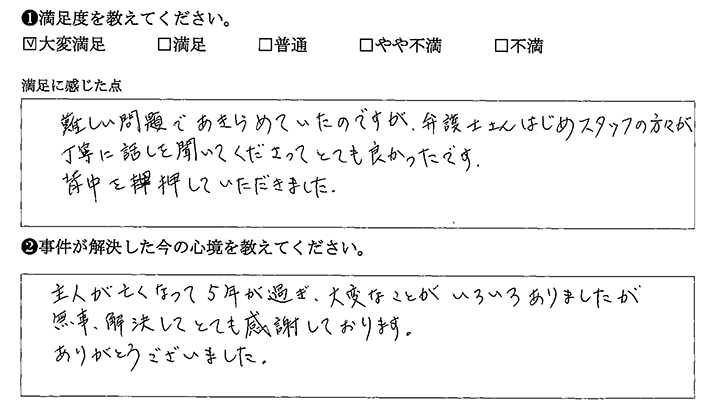 ❶満足度を教えてください。
☑大変満足 □満足 □普通 □やや不満 □不満
満足に感じた点
難しい問題であきらめていたのですが、弁護士さんはじめスタッフの方々が
丁寧に話しを聞いてくださってとても良かったです。
背中を押していただきました。
❷事件が解決した今の心境を教えてください。
主人が亡くなって5年が過ぎ、大変なことがいろいろありましたが
無事、解決してとても感謝しております。
ありがとうございました。